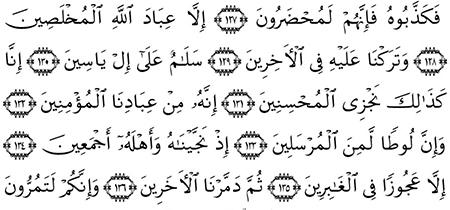 فَكَذَّبُوهُ فَإِنَّهُمْ لَمُحْضَرُونَ ﴿١٢٧﴾ إِلَّا عِبَادَ ٱللَّهِ ٱلْمُخْلَصِينَ
﴿١٢٨﴾ وَتَرَكْنَا عَلَيْهِ فِى ٱلْأَخِرِينَ ﴿١٢٩﴾ سَلَٰمٌ عَلَىٰٓ إِلْ يَاسِينَ ﴿١٣٠﴾ إِنَّا
كَذَٰلِكَ نَجْزِى ٱلْمُحْسِنِينَ ﴿١٣١﴾ إِنَّهُۥ مِنْ عِبَادِنَا ٱلْمُؤْمِنِينَ ﴿١٣٢﴾
وَإِنَّ لُوطًا لَّمِنَ ٱلْمُرْسَلِينَ ﴿١٣٣﴾ إِذْ نَجَّيْنَٰهُ وَأَهْلَهُۥٓ أَجْمَعِينَ ﴿١٣٤﴾
إِلَّا عَجُوزًا فِى ٱلْغَٰبِرِينَ ﴿١٣٥﴾ ثُمَّ دَمَّرْنَا ٱلْأَخَرِينَ ﴿١٣٦﴾ وَإِنَّكُمْ لَتَمُرُّونَ